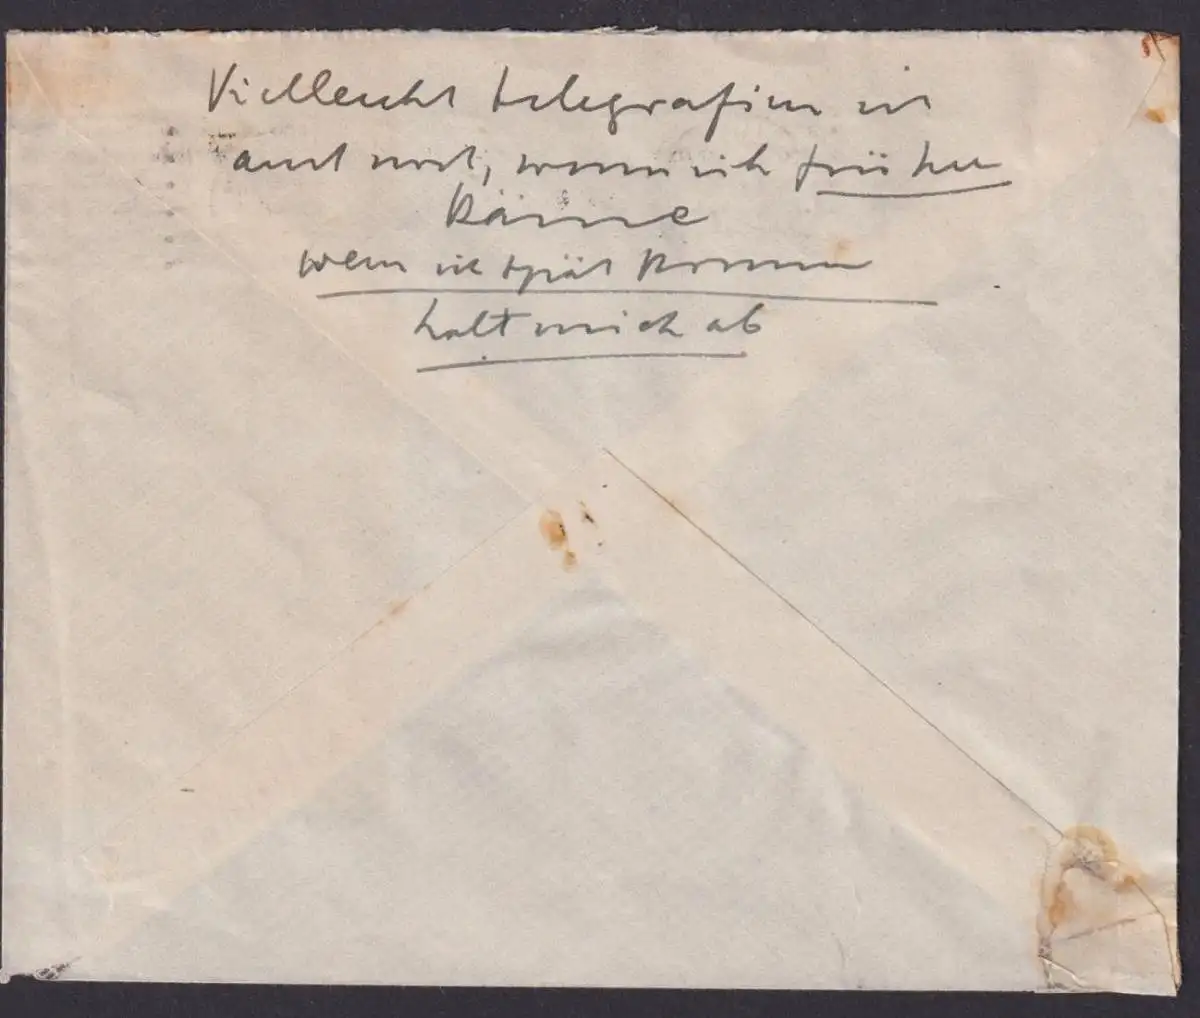 Vielleicht telegrafiere ich
auch noch, wenn ich früher
käme
wenn ich spät komme
holt mich ab